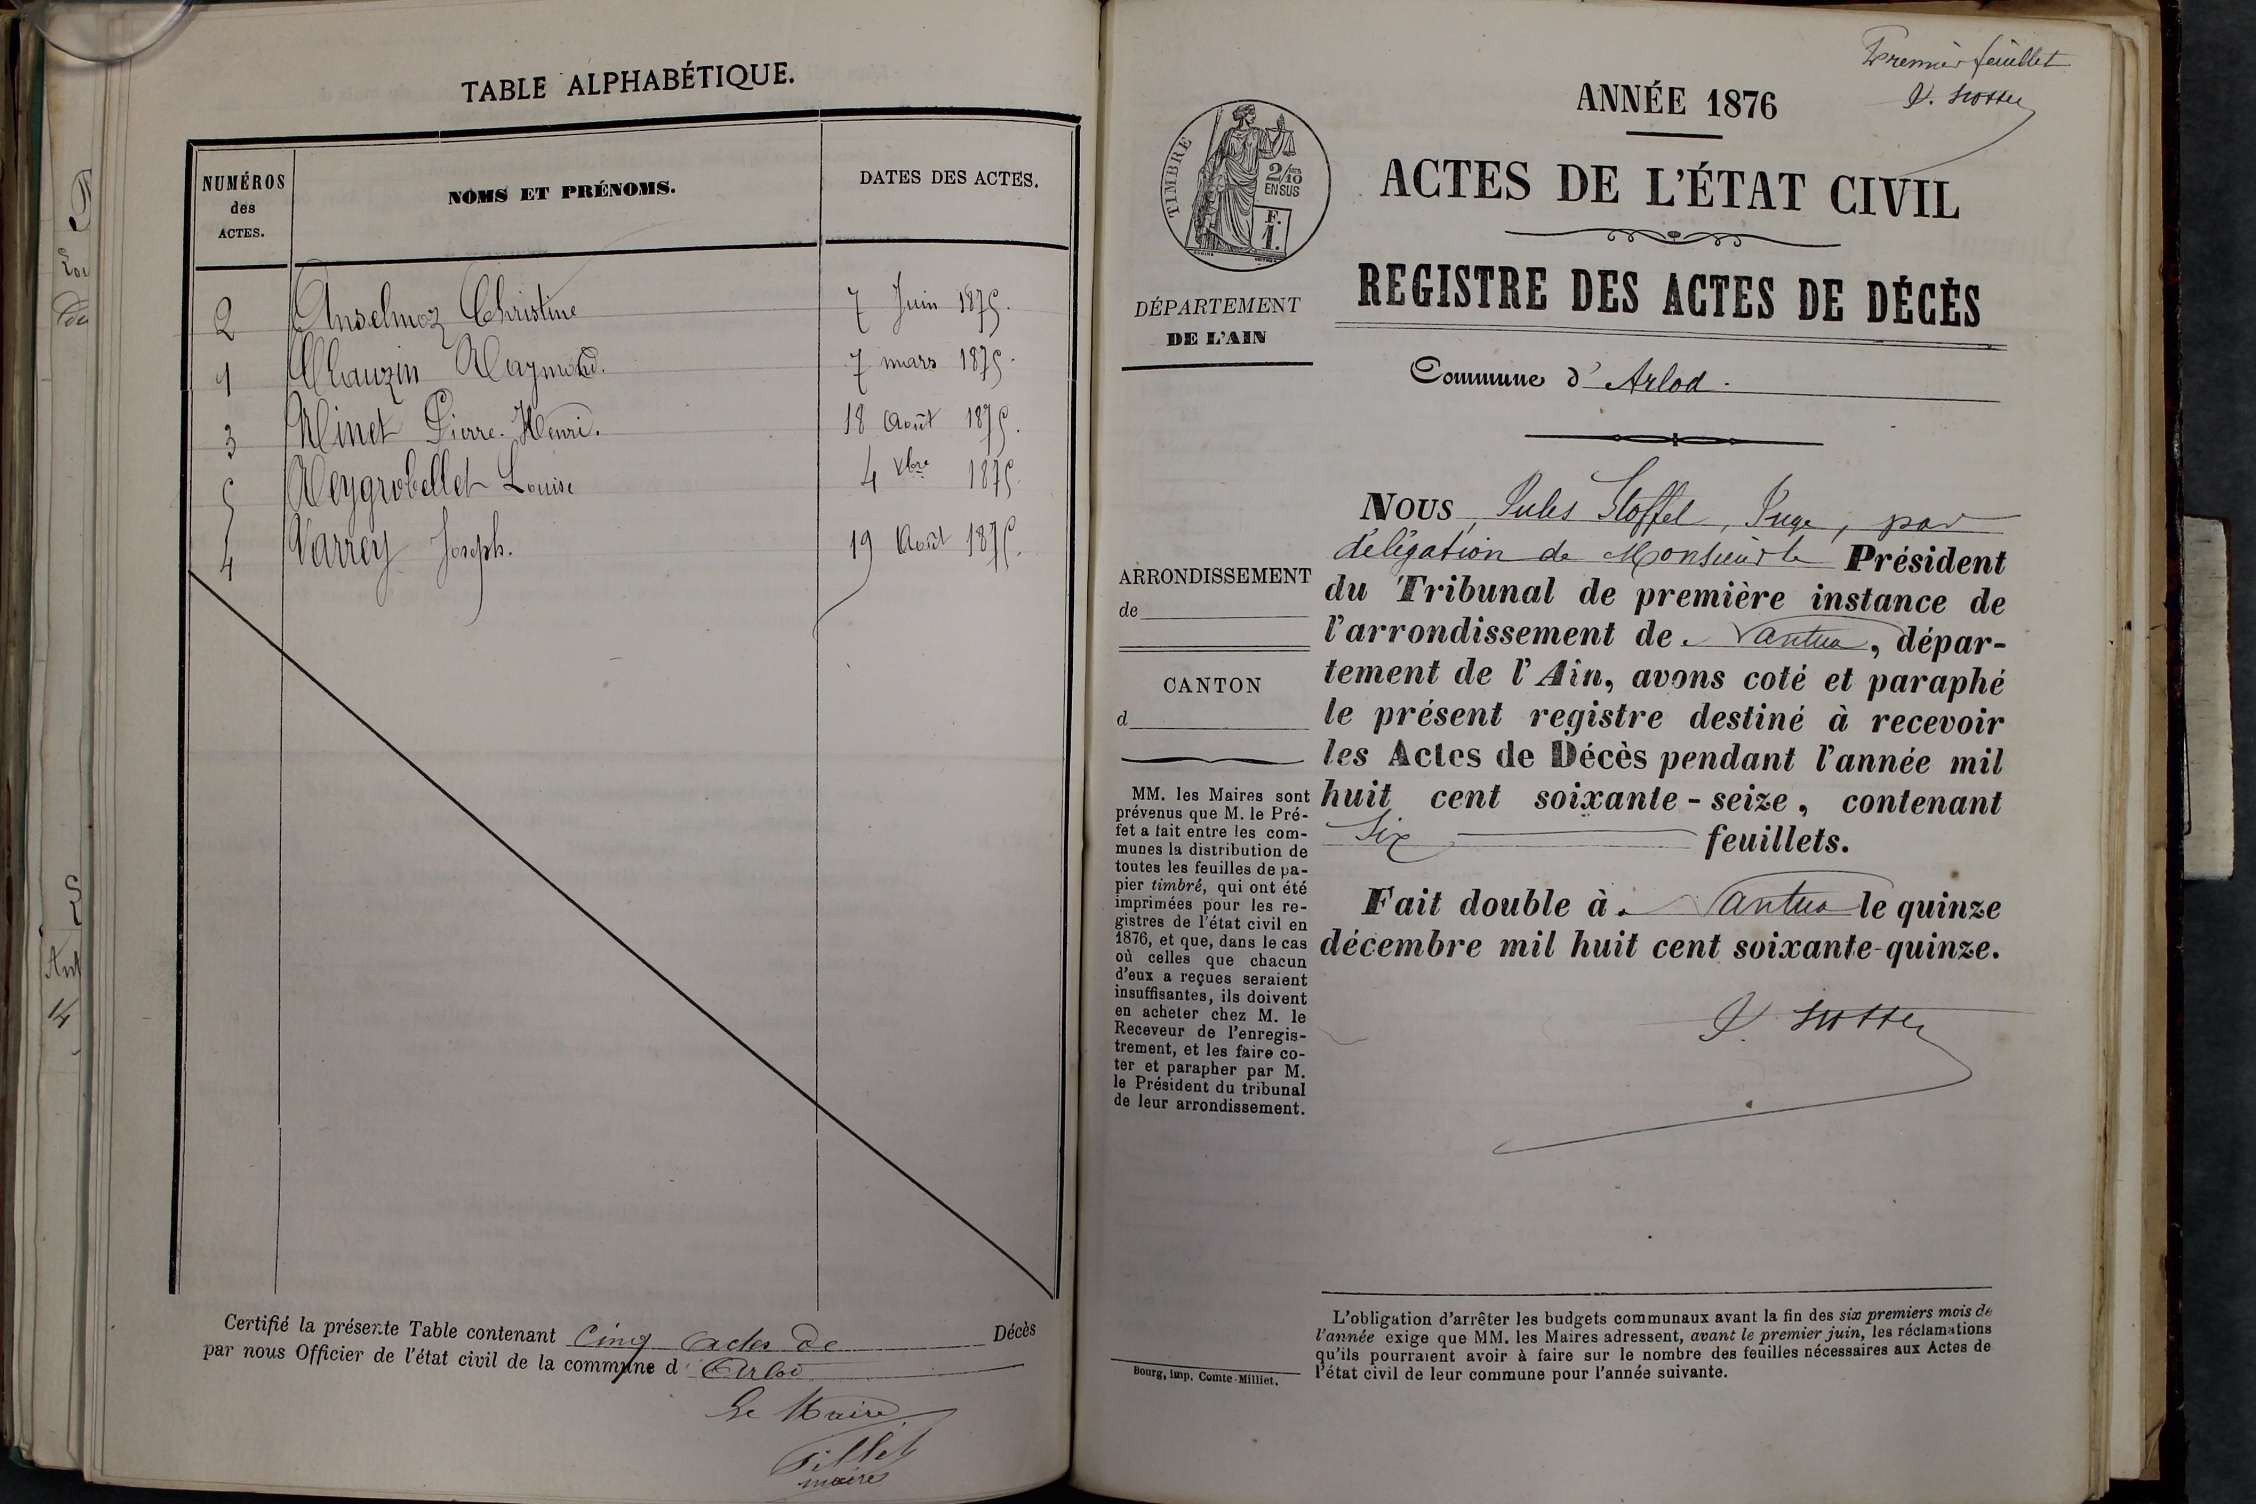 TABLE ALPHABÉTIQUE.
NUMÉROS des ACTES.
NOMS ET PRÉNOMS.
DATES DES ACTES.
2 Anselmoz Christine 7 Juin 1875.
1 Chauzin Raymond. 7 mars 1875.
3 Minet Pierre-Henri. 18 Août 1875.
5 Neygrobellet Louise 4 Xbre 1875.
4 Varrey Joseph. 19 Août 1875.
Certifié la présente Table contenant Cinq actes de Décès
par nous Officier de l'état civil de la commune d'Arlod
Le Maire
Pillet
maire
Premier feuillet
ANNÉE 1876
ACTES DE L'ÉTAT CIVIL
REGISTRE DES ACTES DE DÉCÈS
TIMBRE
2/10
EN SUS
F.
1.
DÉPARTEMENT
DE L'AIN
Commune d'Arlod.
ARRONDISSEMENT
de
CANTON
d
MM. les Maires sont
prévenus que M. le Pré-
fet a fait entre les com-
munes la distribution de
toutes les feuilles de pa-
pier timbré, qui ont été
imprimées pour les re-
gistres de l'état civil en
1876, et que, dans le cas
où celles que chacun
d'eux a reçues seraient
insuffisantes, ils doivent
en acheter chez M. le
Receveur de l'enregis-
trement, et les faire co-
ter et parapher par M.
le Président du tribunal
de leur arrondissement.
Bourg, imp. Comte-Milliet.
NOUS Jules Stoffel, Juge, par
délégation de Monsieur le Président
du Tribunal de première instance de
l'arrondissement de Nantua, dépar-
tement de l'Ain, avons coté et paraphé
le présent registre destiné à recevoir
les Actes de Décès pendant l'année mil
huit cent soixante-seize, contenant
Six feuillets.
Fait double à Nantua le quinze
décembre mil huit cent soixante-quinze.
L'obligation d'arrêter les budgets communaux avant la fin des six premiers mois de
l'année exige que MM. les Maires adressent, avant le premier juin, les réclamations
qu'ils pourraient avoir à faire sur le nombre des feuilles nécessaires aux Actes de
l'état civil de leur commune pour l'année suivante.